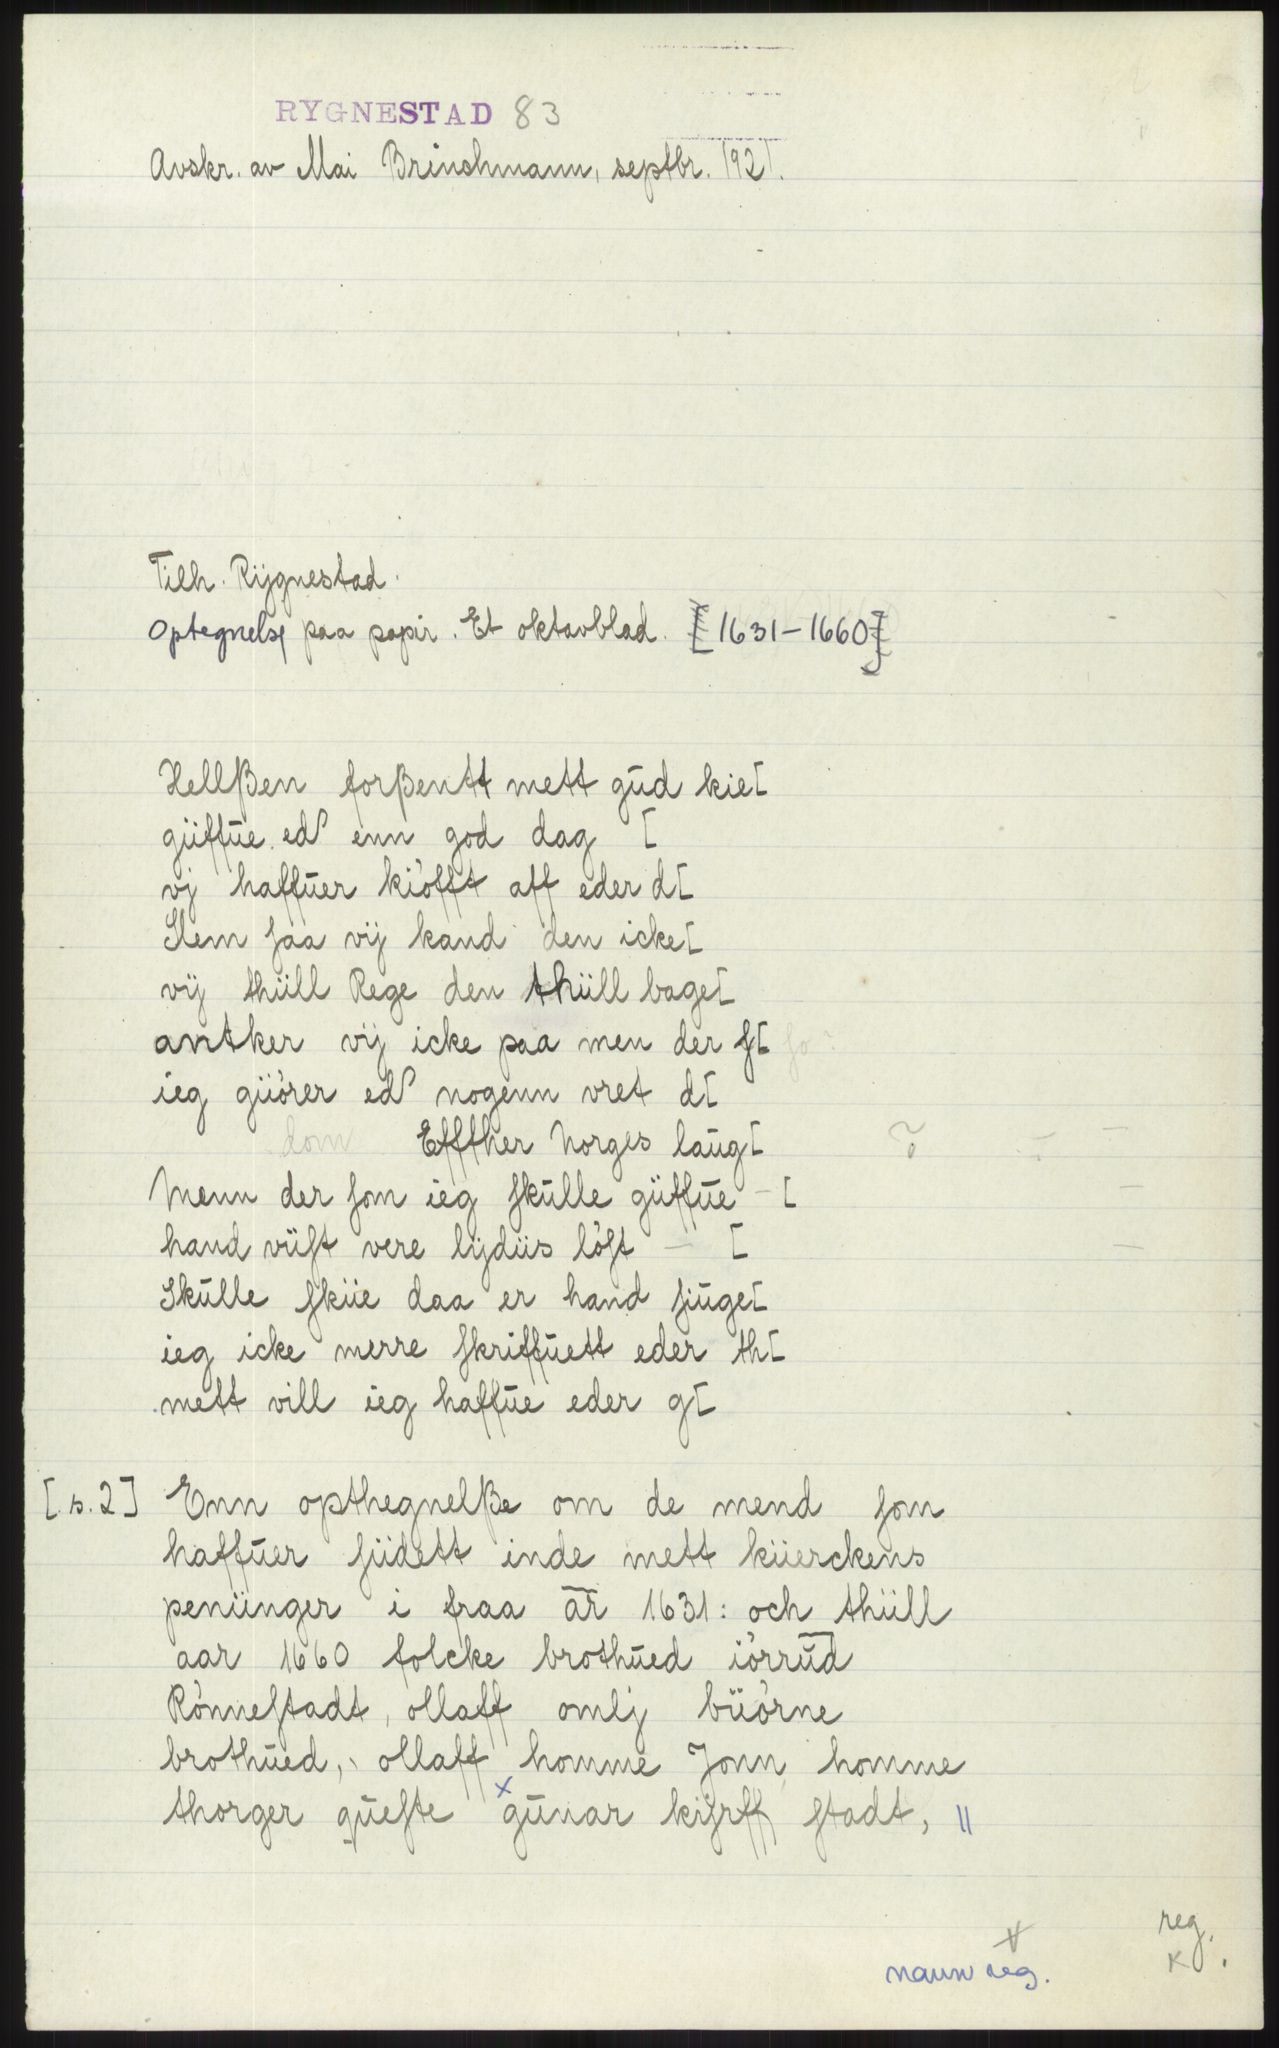 RYGNESTAD 83
Avskr. av Mai Brinchmann, septbr. 1921.
Tilh. Rygnestad.
Optegnelse paa papir. Et oktavblad. [1631-1660]
Hellßen forßentt mett gud kie[
güffue ed enn god dag [
vj haffuer kiöfft aff eder d[
Slem saa vij kand den icke[
vij thüll Rege den thüll bage[
antker vij icke paa men der s[
ieg giörer ed nogenn vret d[
dom Effther Norges laug[
Menn der som ieg skulle güffue - [
hand vüst vere lijdüs löst - [
Skulle sküe daa er hand siuge[
ieg icke merre skriffuett eder th[
mett vill ieg haffue eder g[
[s.2] Enn opthegnelße om de mend som
haffuer süidett inde mett küerckens
penünger i fraa ar 1631: och thüll
aar 1660 folcke brothued iörrud
Rönnestadt, ollaff omlj büörne
brothued, ollaff homme Jonn homme
thorger queste gunar kisrff stadt, "
reg.
K.
navn reg.